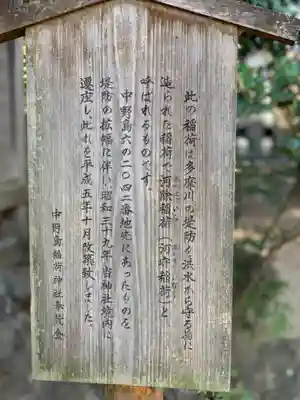 此の稲荷は多摩川の堤防を洪水から守る為に
造られた稲荷で「河除稲荷」「河坪稲荷」と
呼ばれるものです。
中野島六の二〇四二番地先にあったものを
堤防の拡幅に伴い、昭和三十九年当神社境内に
遷座し、此れを平成五年十月改築致しました。
中野島稲荷神社奉賛会